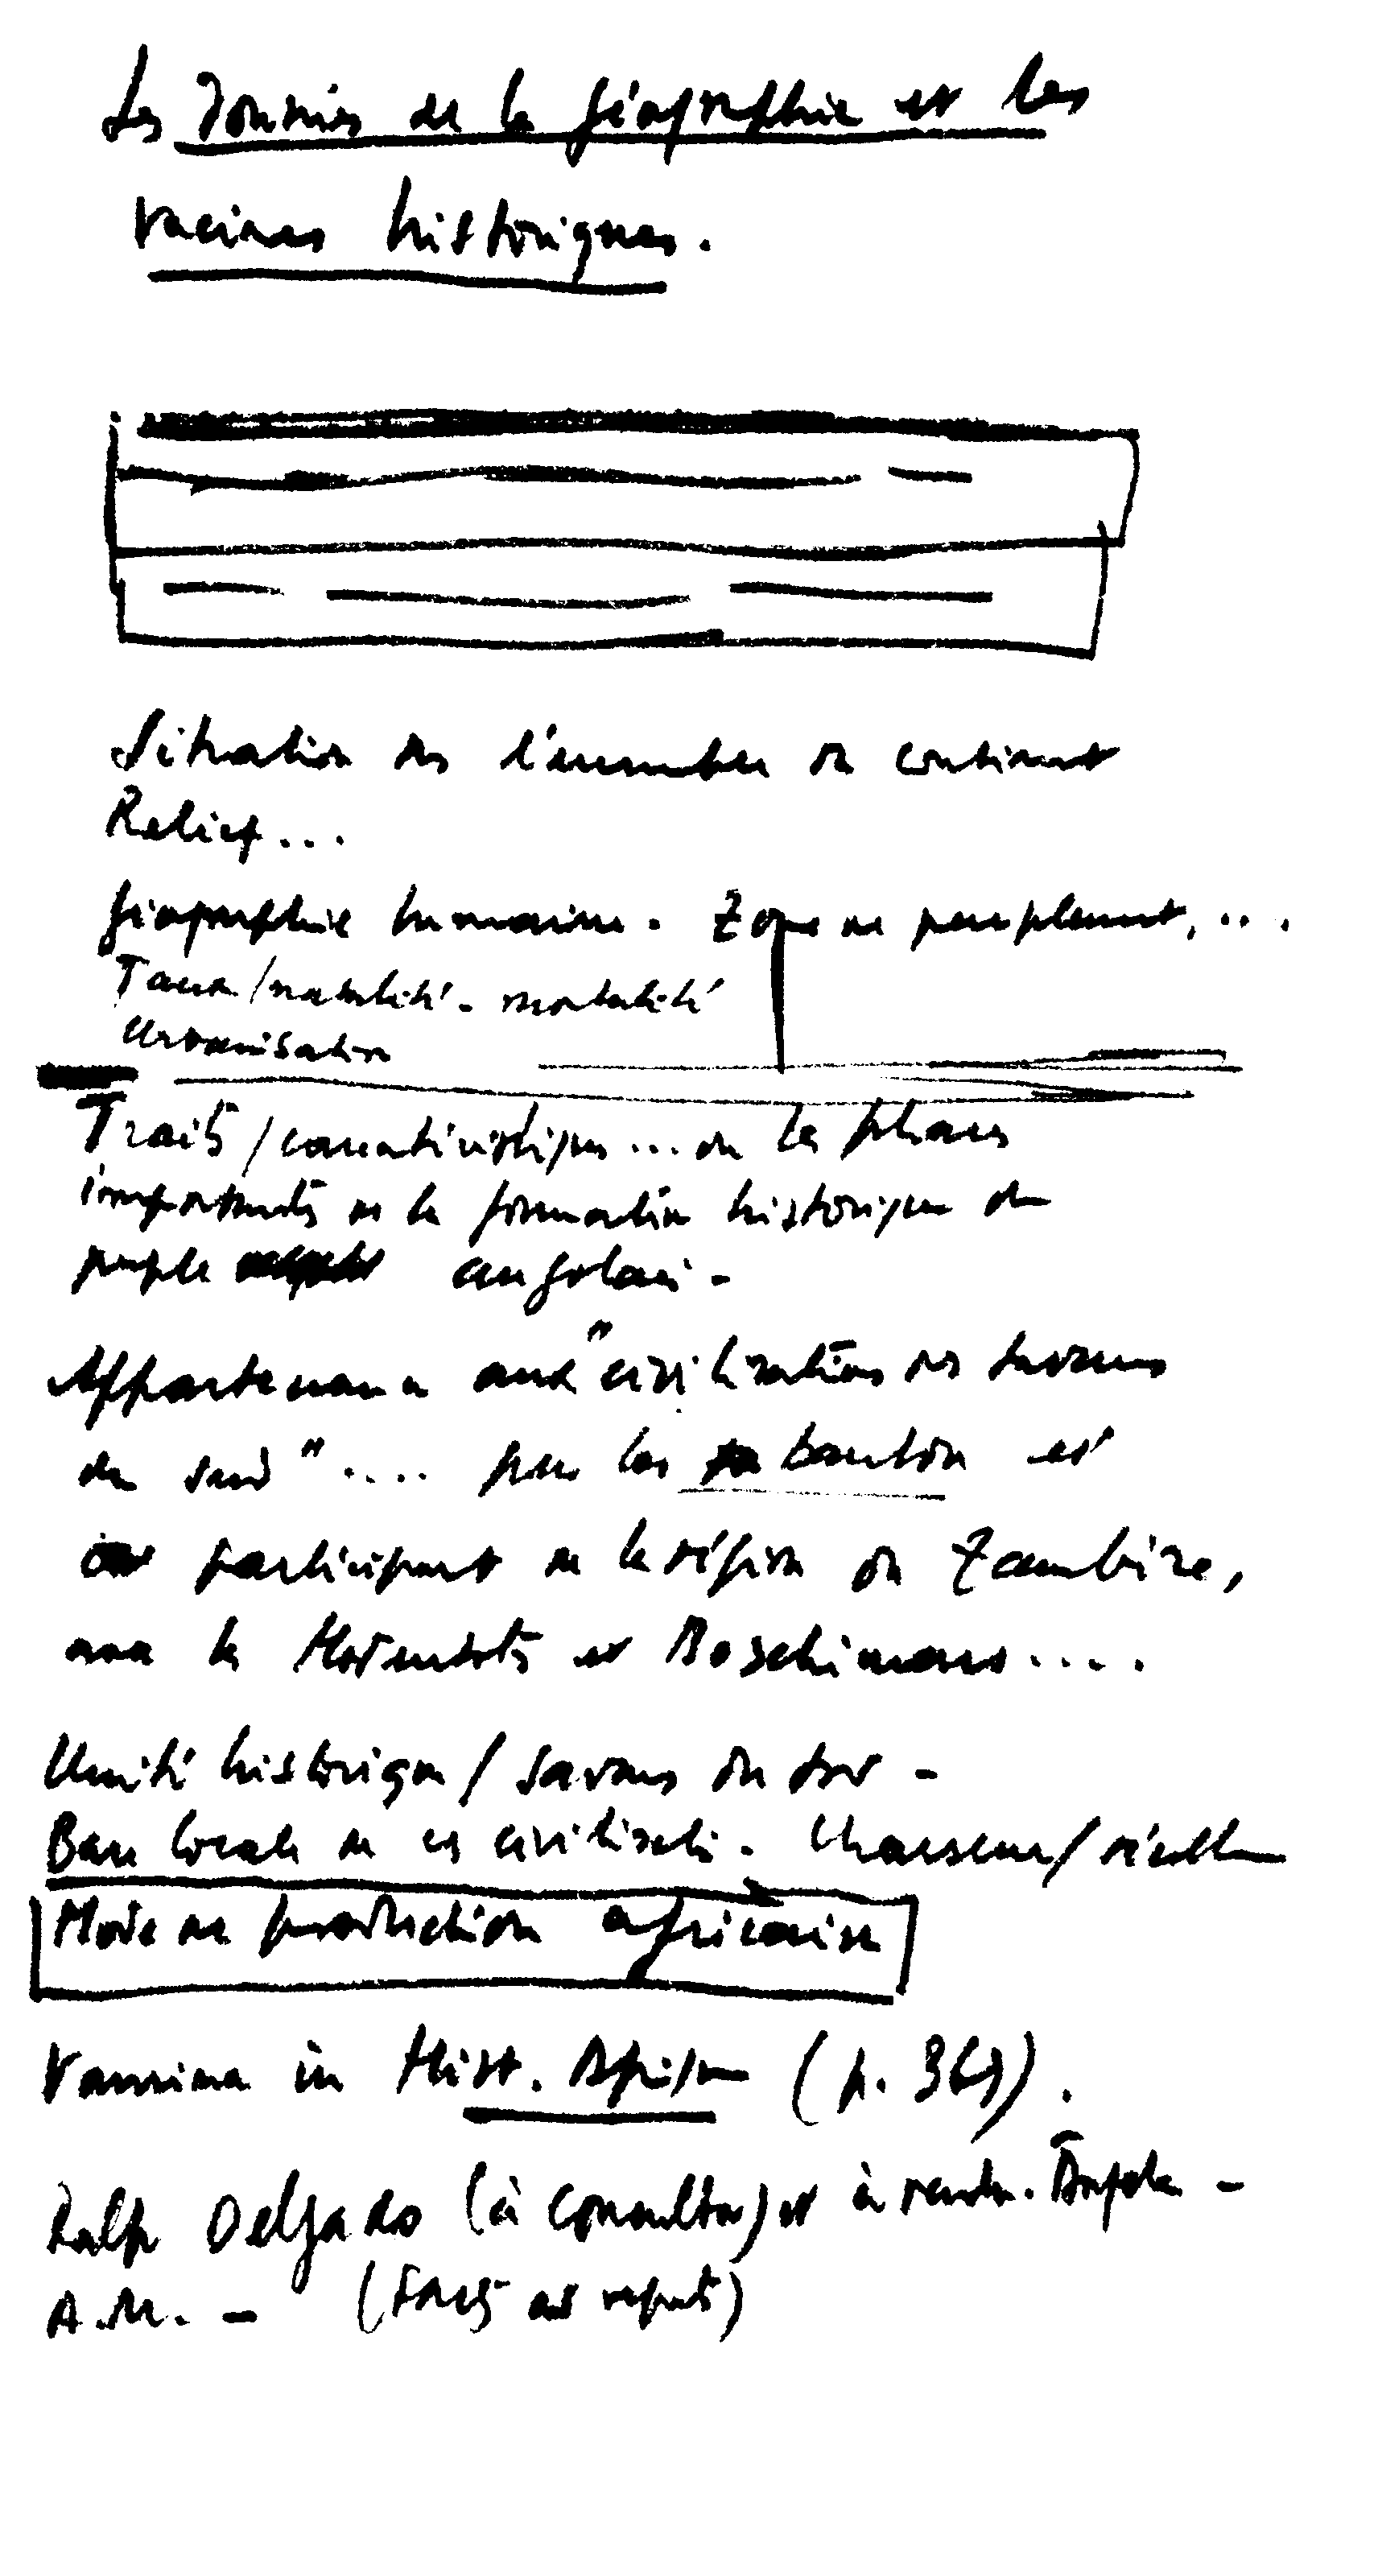 Les Données de la géographie et les
racines historiques.
Situation ds l'ensemble du continent
Relief...
géographie humaine. Zone de peuplement, ...
Taux/natalité - mortalité
Urbanisation
Traits/caractéristiques ... ou les phases
importants de la formation historique du
peuple angolais -
Appartenance aux "civilisations des savanes
du sud" .... par les bantou et
participant de la région du Zambèze,
avec les Hottentots et Boschimans ....
Unité historique/savanes du sud -
Base locale de ces civilisati. Chasseurs/
Mode de production africaine
Vansina in Hist. Afrique (p. 369).
Ralph Delgado (à consulter) et à Angola -
A.M. -